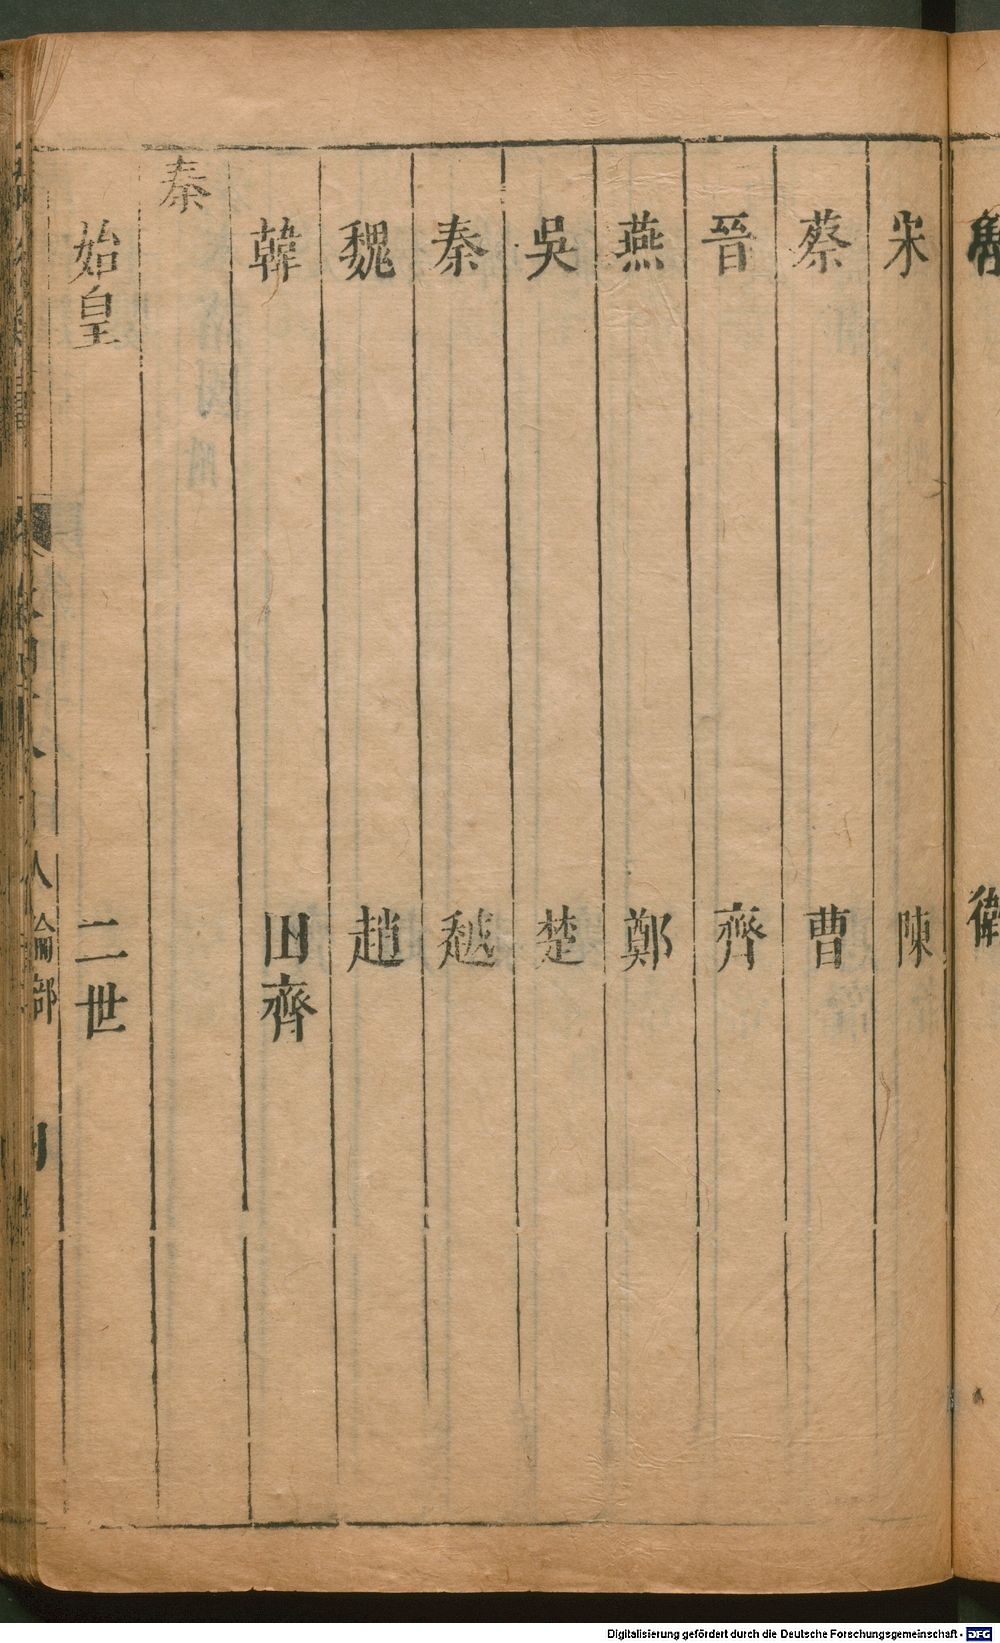 衛
宋 陳
蔡 曹
晉 齊
燕 鄭
吳 楚
秦 越
魏 趙
韓 田齊
秦
始皇 二世
人 倫部
Digitalisierung gefördert durch die Deutsche Forschungsgemeinschaft - DFG